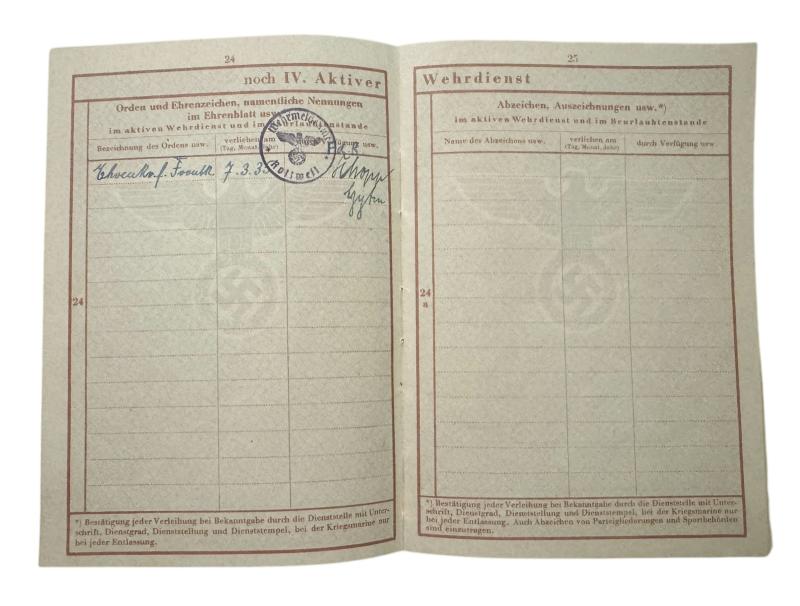 24
noch IV. Aktiver
Orden und Ehrenzeichen, namentliche Nennungen
im Ehrenblatt usw.
im aktiven Wehrdienst und im Beurlaubtenstande
Bezeichnung des Ordens usw.
verliehen am
(Tag, Monat, Jahr)
Verfügung usw.
Ehrenkr. f. Frontk 7.3.35
Wehrmeldeamt
Rottweil
24
*) Bestätigung jeder Verleihung bei Bekanntgabe durch die Dienststelle mit Unter-
schrift, Dienstgrad, Dienststellung und Dienststempel, bei der Kriegsmarine nur
bei jeder Entlassung.
25
Wehrdienst
Abzeichen, Auszeichnungen usw.*)
im aktiven Wehrdienst und im Beurlaubtenstande
Name des Abzeichens usw.
verliehen am
(Tag, Monat, Jahr)
durch Verfügung usw.
24
a
*) Bestätigung jeder Verleihung bei Bekanntgabe durch die Dienststelle mit Unter-
schrift, Dienstgrad, Dienststellung und Dienststempel, bei der Kriegsmarine nur
bei jeder Entlassung. Auch Abzeichen von Parteigliederungen und Sportbehörden
sind einzutragen.